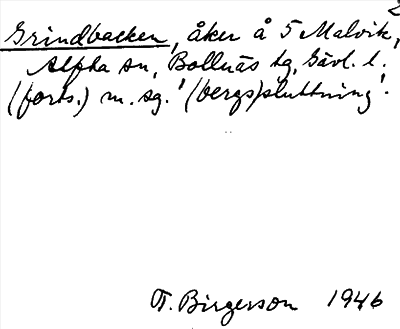 2
Grindbacken, åker å 5 Malvik,
Alpha sn, Bollnäs tg, Gävl. l.
(forts.) m. sg. '(bergs)sluttning'.
T. Birgerson 1946